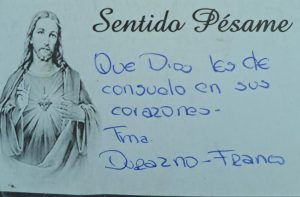 Sentido Pésame
Que Dios les de
consuelo en sus
corazones-
Fma.
Durazno-Franco